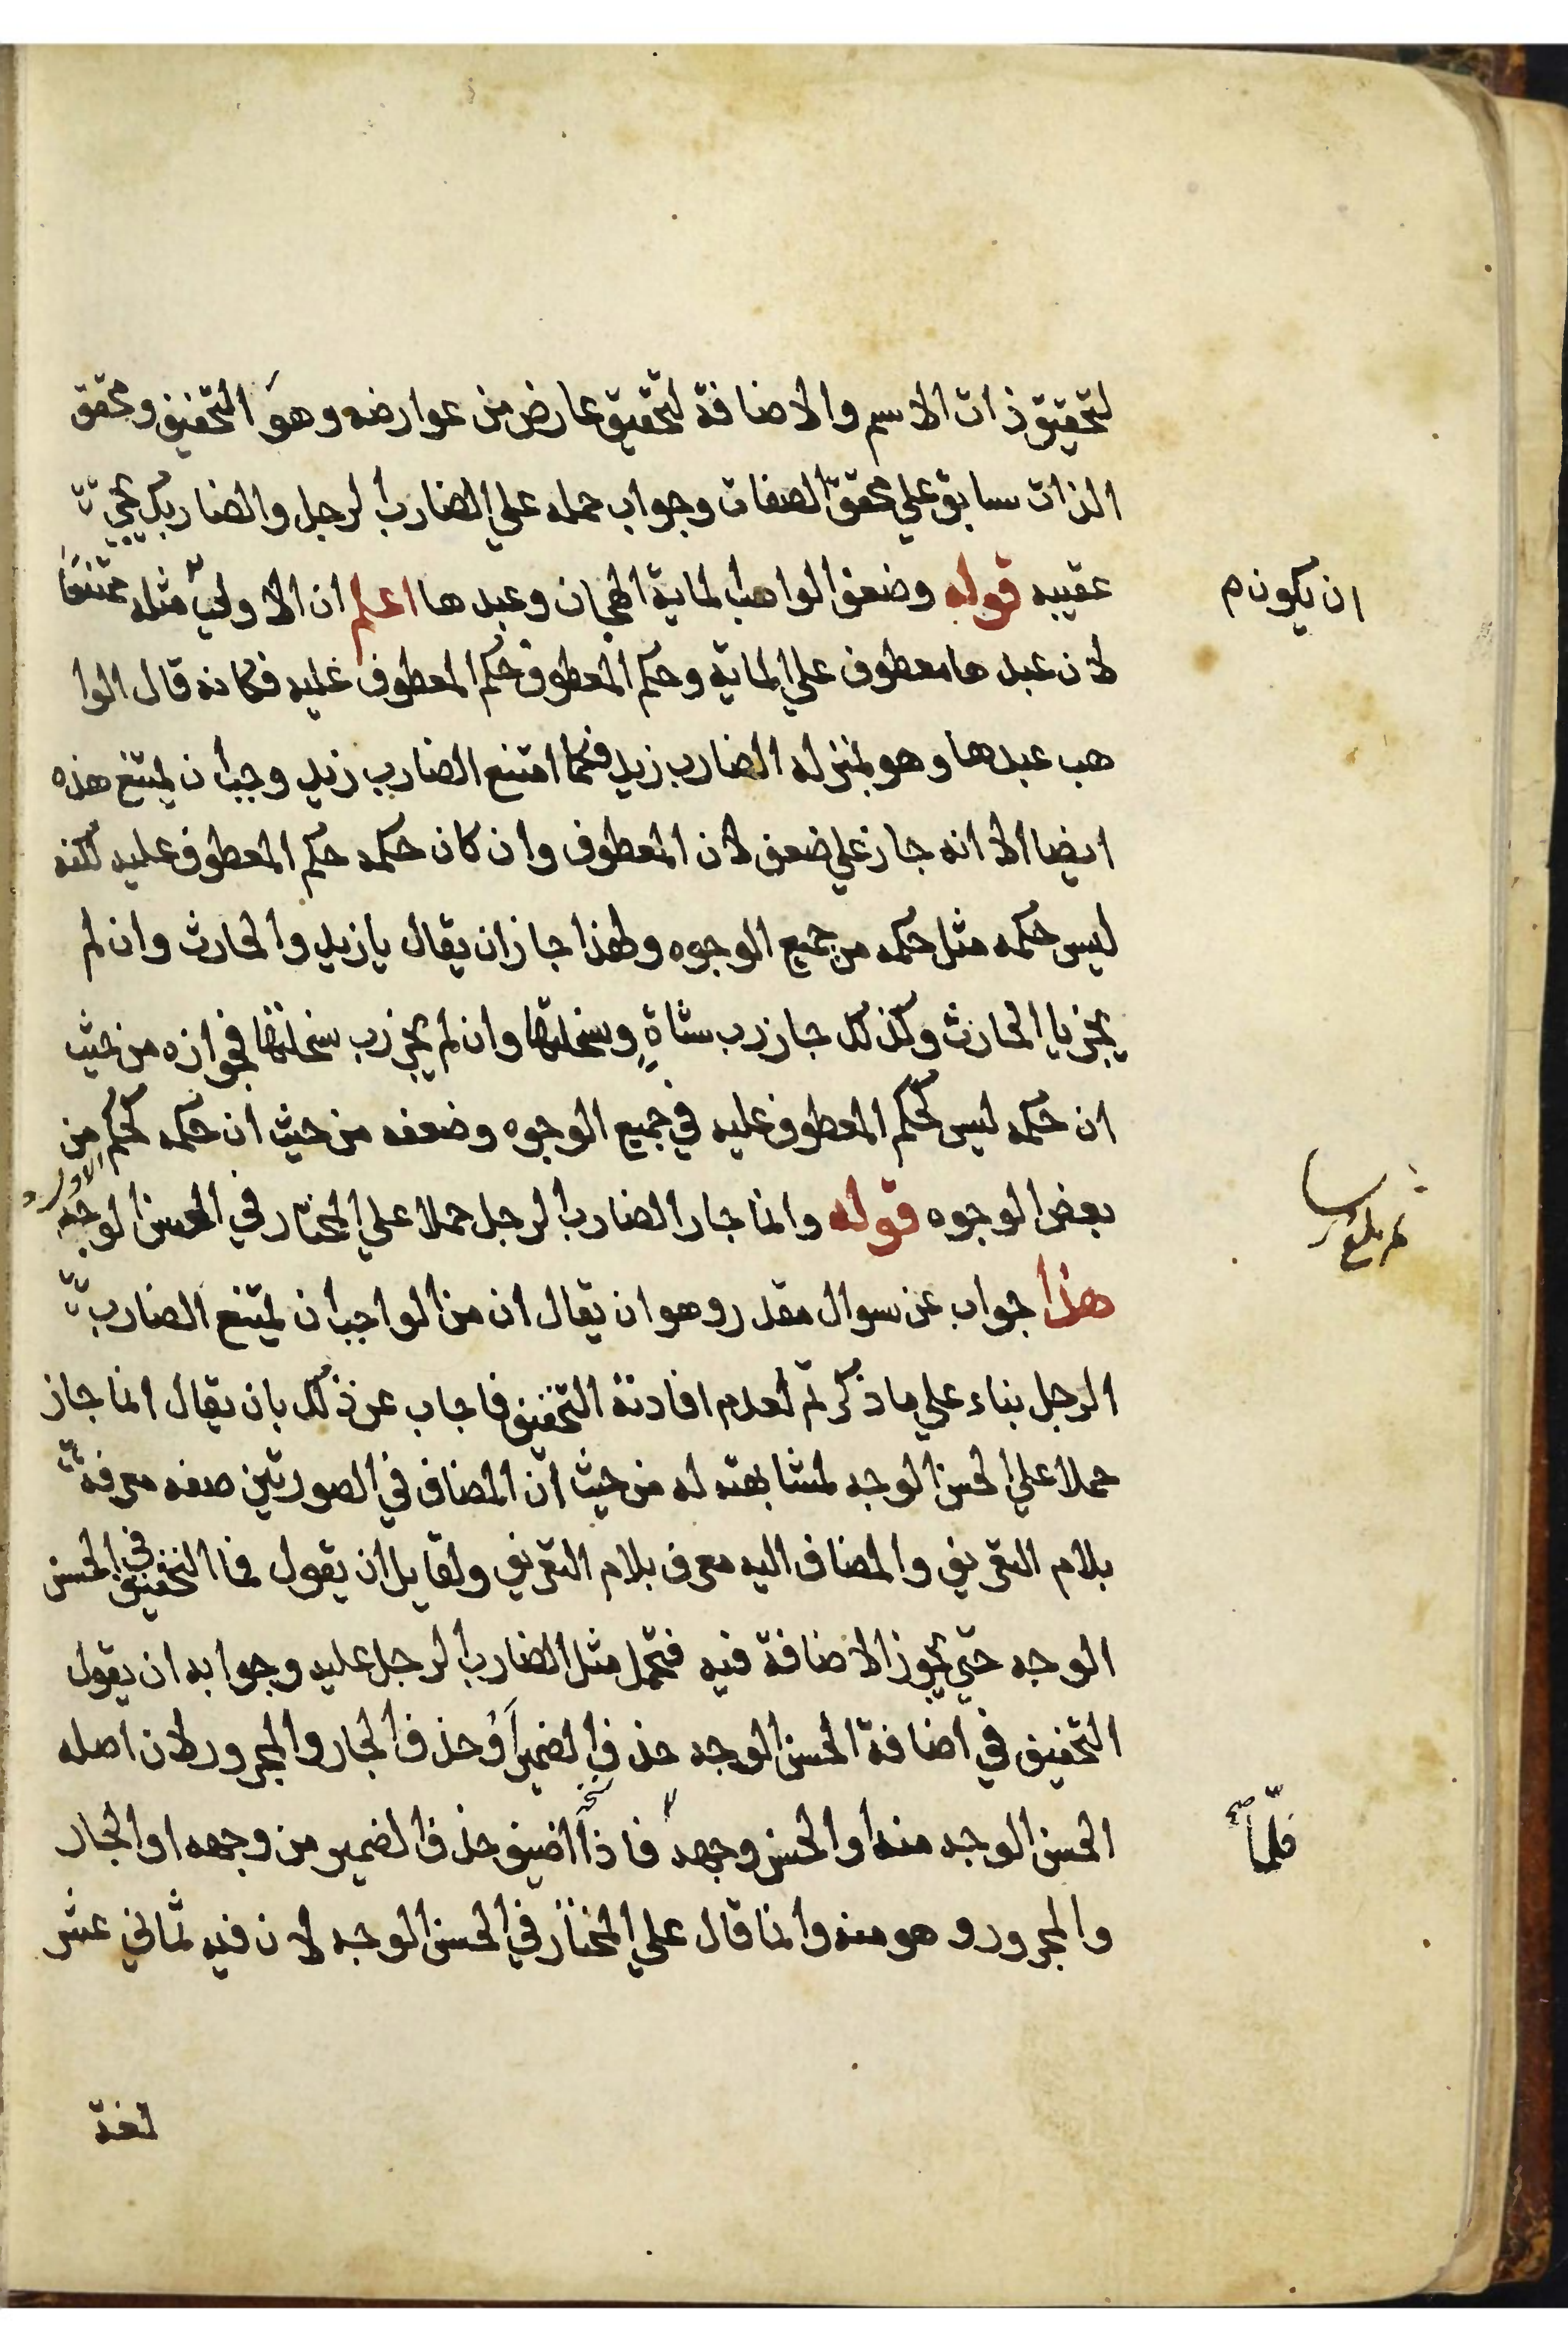 لتحقيق ذات الاسم والاضافة لتحقيق عارض من عوارضه وهو التخفيف وتحقق
الذات سابق علي تحقق الصفات وجواب حمله علي الضارب الرجل والضاربك يجيي
عقيبه قوله وضعف الواهب الماية الهجان وعبدها اعلم ان الاولي مثله ممتنعا
ان يكون م
لان عبدها معطوف علي الماية وحكم المعطوف حكم المعطوف عليه فكانه قال الوا
هب عبدها وهو بمنزلة الضارب زيد فكما امتنع الضارب زيد وجب ان يمتنع هذه
ايضا الا انه جاز علي ضعف لان المعطوف وان كان حكمه حكم المعطوف عليه لكنه
ليس حكمه مثل حكمه من جميع الوجوه ولهذا جاز ان يقال يا زيد والحارث وان لم
يجز يا الحارث وكذلك جاز رب شاةٍ وسخلتها وان لم يجز رب سخلتها فجوازه من حيث
ان حكمه ليس كحكم المعطوف عليه في جميع الوجوه وضعفه من حيث ان حكمه كحكم الاول من
بعض الوجوه قوله وانما جاز الضارب الرجل حملا علي المختار في الحسن الوجه
هذا جواب عن سوال مقدر وهو ان يقال ان من الواجب ان يمتنع الضارب
الرجل بناء علي ما ذكرتم لعدم افادته التخفيف فاجاب عن ذلك بان يقال انما جاز
حملا علي الحسن الوجه لمشابهته له من حيث ان المضاف في الصورتين صفه معرفة
بلام التعريف والمضاف اليه معرف بلام التعريف ولقايل ان يقول فما التخفيف في الحسن
الوجه حتي يجوز الاضافة فيه فتحمل مثل الضارب الرجل عليه وجوابه ان يقول
التخفيف في اضافة الحسن الوجه حذف الضمير أو حذف الجار والمجرور لان اصله
الحسن الوجه منه او الحسن وجهه فاذا اضيف حذف الضمير من وجهه او الجار
فلمّا
والمجرور وهو منه وانما قال علي المختار في الحسن الوجه لان فيه ثماني عشر
لغة